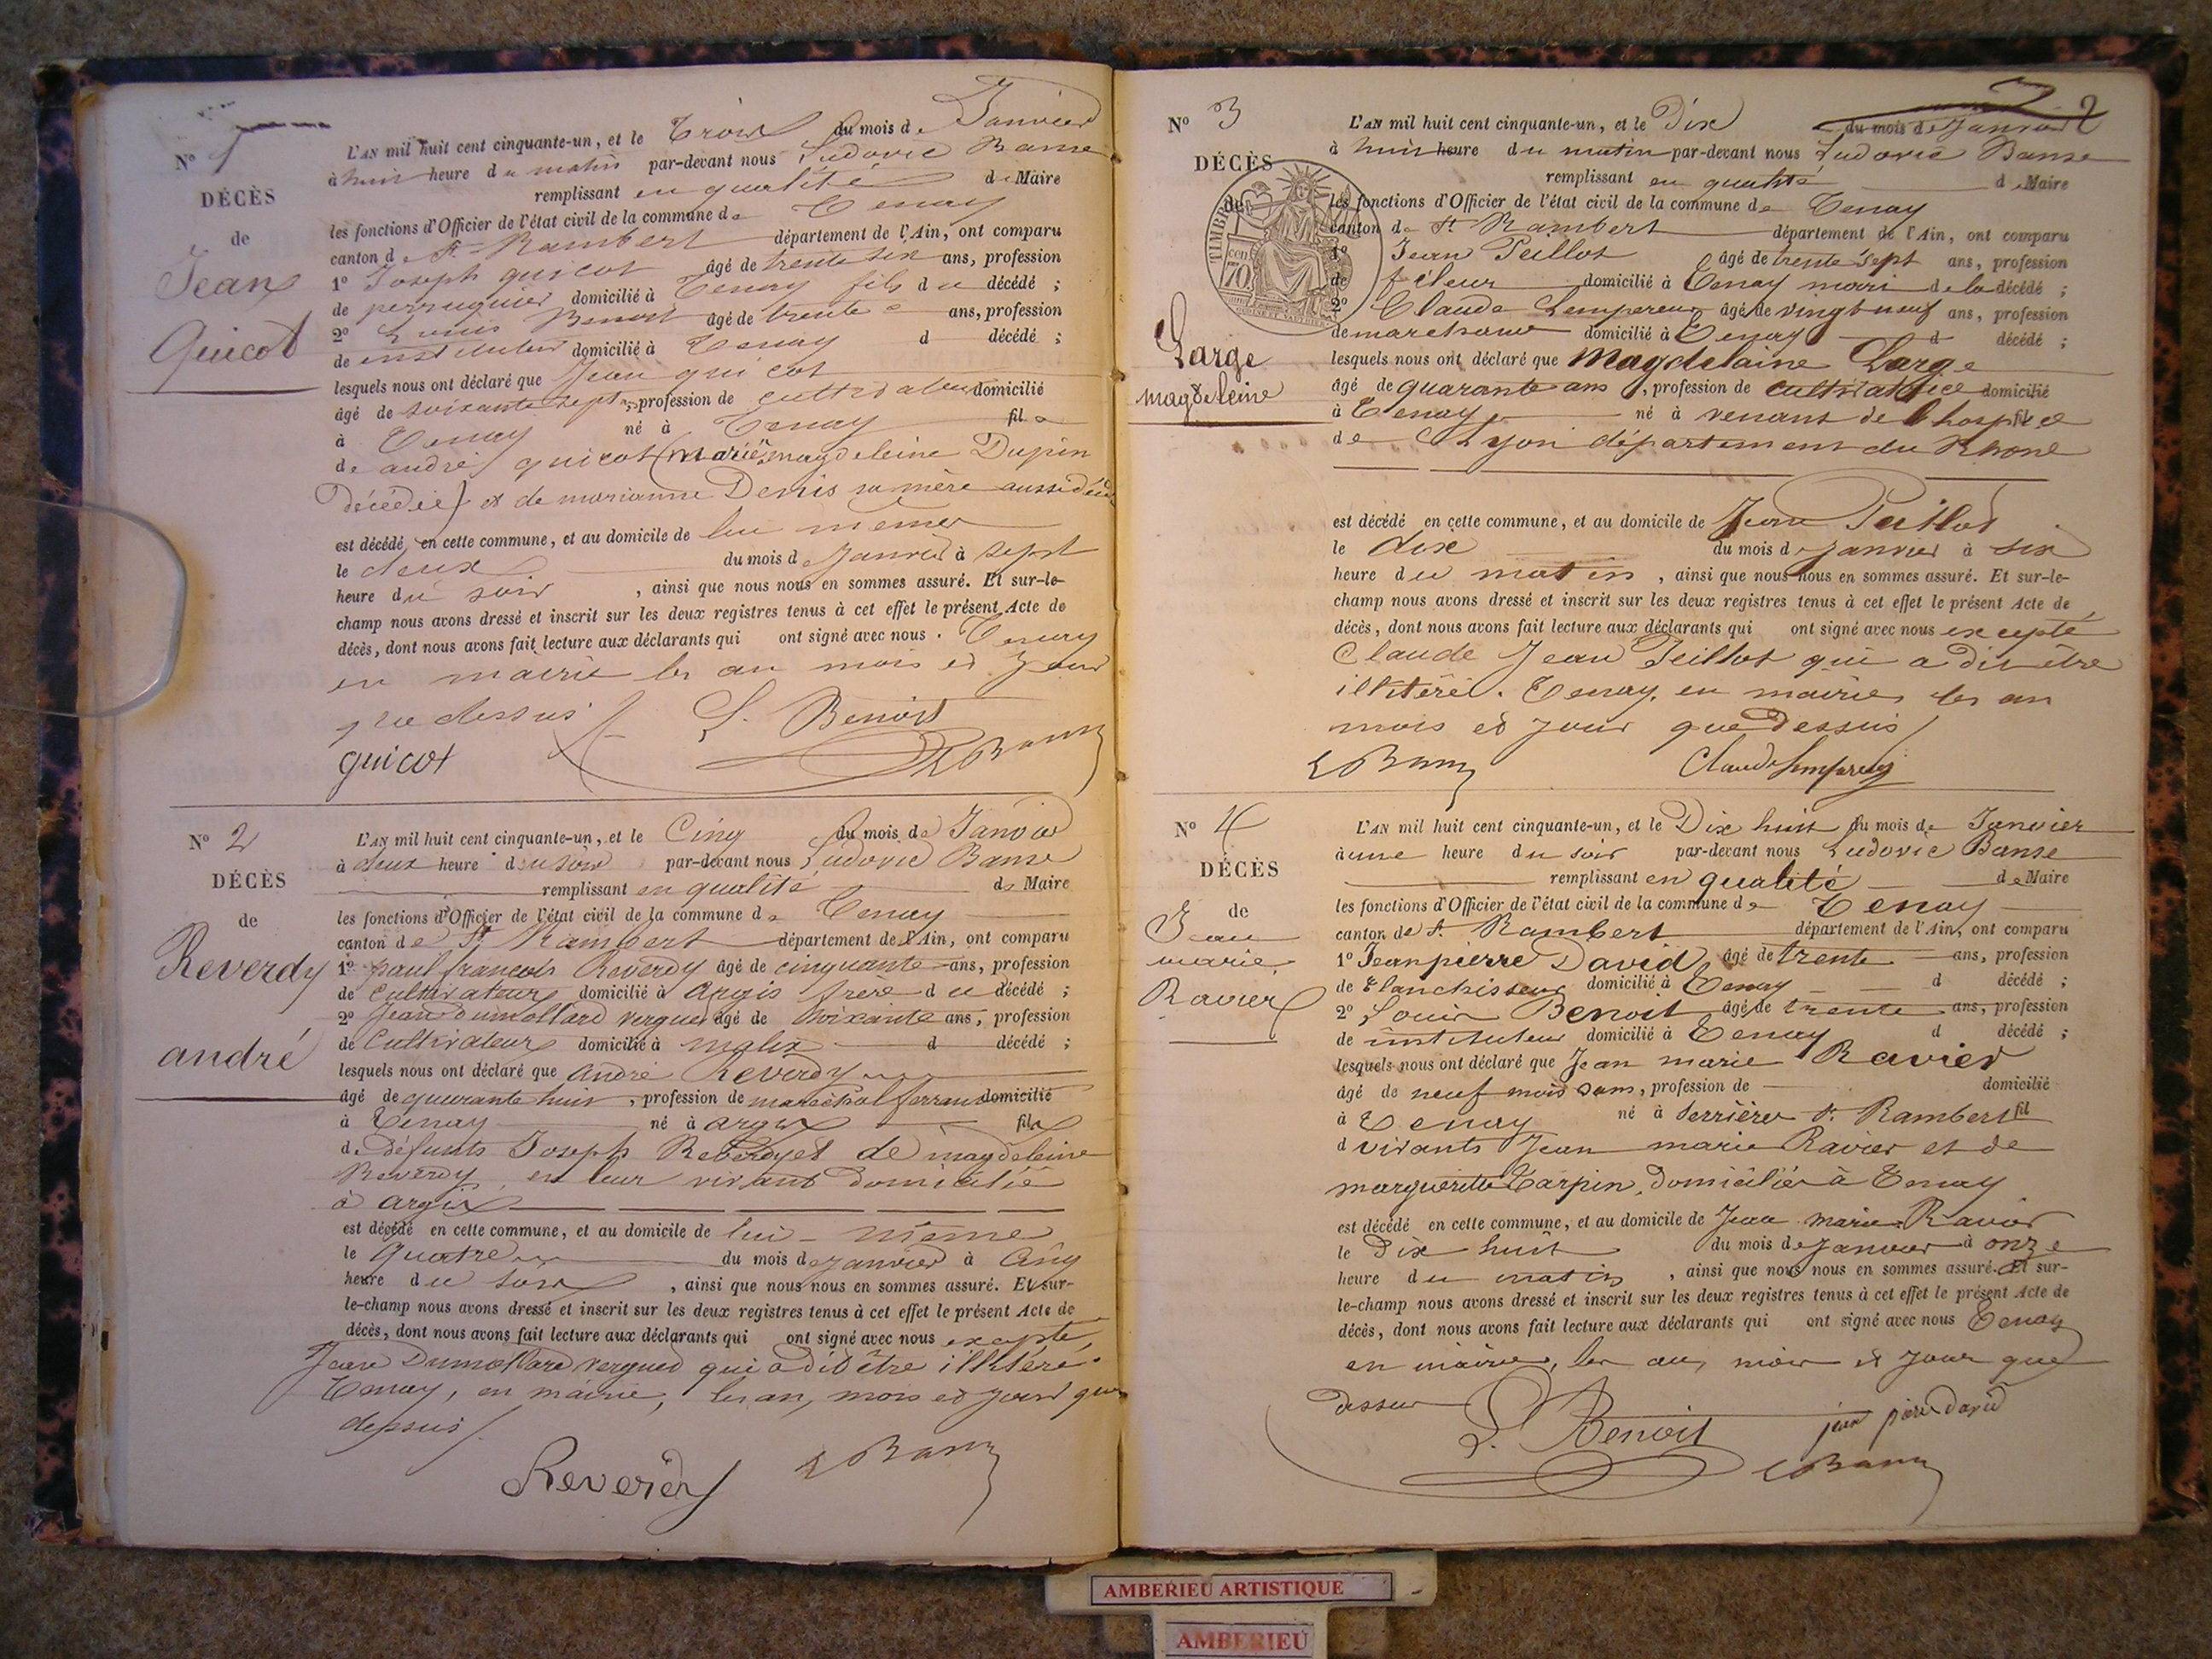 N° 1
DÉCÈS
de
Jean
Guicot
L'AN mil huit cent cinquante-un, et le Trois du mois de Janvier
à huit heure du matin par-devant nous Ludovic Banse
remplissant en qualité de Maire
les fonctions d'Officier de l'état civil de la commune de Tenay
canton de St Rambert département de l'Ain, ont comparu
1° Joseph guicot âgé de trente six ans, profession
de perruquier domicilié à Tenay fils du décédé ;
2° Louis Benoit âgé de trente ans, profession
de instituteur domicilié à Tenay d décédé ;
lesquels nous ont déclaré que Jean guicot
âgé de soixante sept, profession de cultivateur domicilié
à Tenay né à Tenay fil
de andré guicot (marié magdeleine Dupin
décédée) et de marianne Denis sa mère aussi
est décédé en cette commune, et au domicile de lui même
le deux du mois de Janvier à sept
heure du soir, ainsi que nous nous en sommes assuré. Et sur-le-
champ nous avons dressé et inscrit sur les deux registres tenus à cet effet le présent Acte de
décès, dont nous avons fait lecture aux déclarants qui ont signé avec nous. Tenay
en mairie les an mois et jour
que dessus
L. Benoit
guicot
L Banse
N° 2
DÉCÈS
de
Reverdy
andré
L'AN mil huit cent cinquante-un, et le Cinq du mois de Janvier
à deux heure du soir par-devant nous Ludovic Banse
remplissant en qualité de Maire
les fonctions d'Officier de l'état civil de la commune de Tenay
canton de St Rambert département de l'Ain, ont comparu
1° paul françois Reverdy âgé de cinquante ans, profession
de Cultivateur domicilié à Argis frere du décédé ;
2° Jean Dumollard vergued âgé de Soixante ans, profession
de Cultivateur domicilié à d décédé ;
lesquels nous ont déclaré que André Reverdy
âgé de quarante huit, profession de maréchal ferrand domicilié
à Tenay né à argis fils
de défunts Joseph Reverdy et de magdeleine
Reverdy, en leur vivant domicilié
à argis
est décédé en cette commune, et au domicile de lui-même
le quatre du mois de janvier à Cinq
heure du soir, ainsi que nous nous en sommes assuré. Et sur-
le-champ nous avons dressé et inscrit sur les deux registres tenus à cet effet le présent Acte de
décès, dont nous avons fait lecture aux déclarants qui ont signé avec nous excepté
Jean Dumollard vergued qui a dit être illitéré.
Tenay, en mairie, les an, mois et jour que
dessus
Reverdy
L Banse
2
N° 3
DÉCÈS
de
TIMBRE
70
Large
magdeleine
L'AN mil huit cent cinquante-un, et le Dix du mois de Janvier
à huit heure du matin par-devant nous Ludovic Banse
remplissant en qualité de Maire
les fonctions d'Officier de l'état civil de la commune de Tenay
canton de St Rambert département de l'Ain, ont comparu
1° Jean Peillot âgé de trente sept ans, profession
de fileur domicilié à Tenay mari de la décédé ;
2° Claude Lempereur âgé de vingt neuf ans, profession
de domicilié à Tenay d décédé ;
lesquels nous ont déclaré que Magdelaine Large
âgé de quarante ans, profession de cultivatrice domicilié
à Tenay né à venant de l'hospice fil
de Lyon département du Rhone
est décédé en cette commune, et au domicile de Jean Peillot
le dix du mois de janvier à six
heure du matin, ainsi que nous nous en sommes assuré. Et sur-le-
champ nous avons dressé et inscrit sur les deux registres tenus à cet effet le présent Acte de
décès, dont nous avons fait lecture aux déclarants qui ont signé avec nous excepté
Claude Jean Peillot qui a dit être
illitéré. Tenay, en mairie, les an
mois et jour que Dessus
L Banse
Claude Lempereur
N° 4
DÉCÈS
de
Jean
marie
Ravier
L'AN mil huit cent cinquante-un, et le Dix huit du mois de Janvier
à une heure du soir par-devant nous Ludovic Banse
remplissant en qualité de Maire
les fonctions d'Officier de l'état civil de la commune de Tenay
canton de St Rambert département de l'Ain, ont comparu
1° Jean pierre David, âgé de trente ans, profession
de blanchisseur domicilié à Tenay d décédé ;
2° Louis Benoit âgé de trente ans, profession
de instituteur domicilié à Tenay d décédé ;
lesquels nous ont déclaré que Jean marie Ravier
âgé de neuf mois ans, profession de domicilié
à Tenay né à Serrières St Rambert fil
d vivants Jean marie Ravier et de
marguerite Tarpin, domiciliés à Tenay
est décédé en cette commune, et au domicile de Jean marie Ravier
le Dix huit du mois de janvier à onze
heure du matin, ainsi que nous nous en sommes assuré. Et sur-
le-champ nous avons dressé et inscrit sur les deux registres tenus à cet effet le présent Acte de
décès, dont nous avons fait lecture aux déclarants qui ont signé avec nous Tenay
en mairie, les an, mois et jour que
dessus
L. Benoit
jean pierre david
L Banse
AMBERIEU ARTISTIQUE
AMBERIEU